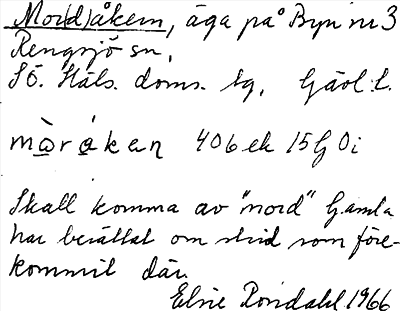 Mo(r)d)åkern, äga på Byn nr 3
Rengsjö sn,
Sö. Häls. doms. sg, Gävl. l.
mòrákan 406 ek 15 G 0 i
Skall komma av "mord" Gamla
har berättat om strid som före-
kommit där.
Elsie Rondahl 1966